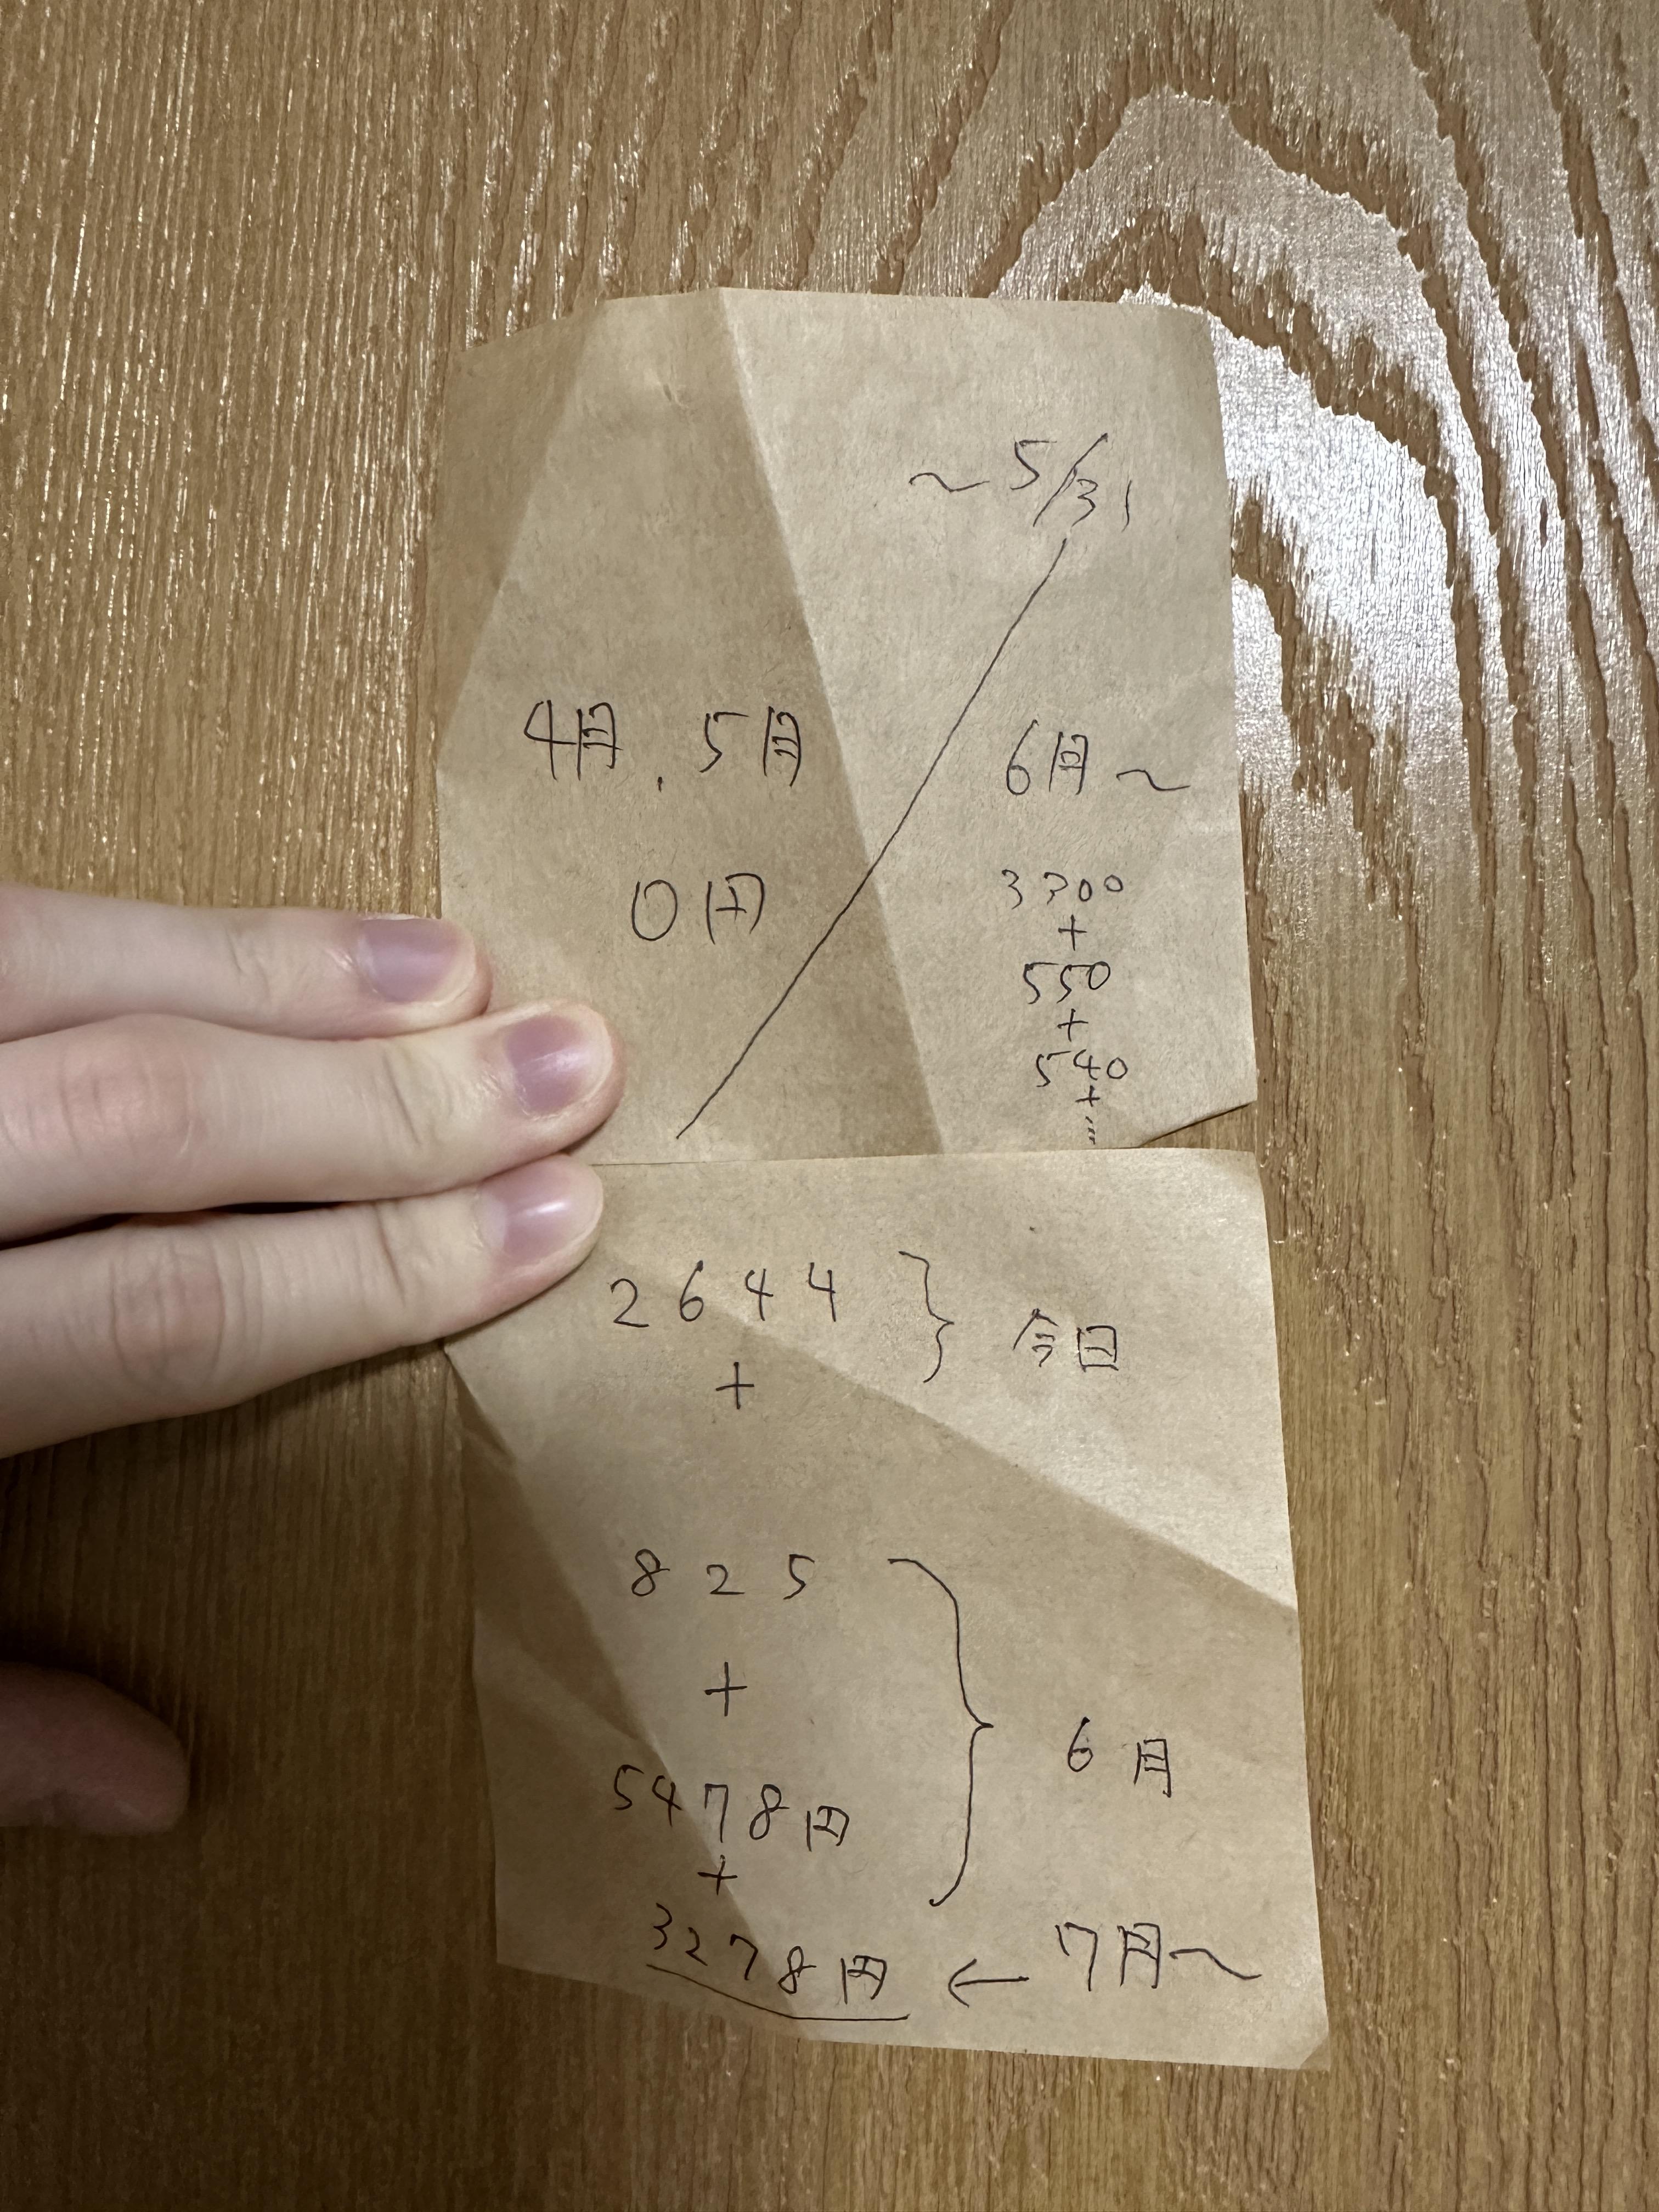 ~5/31
4月、5月
0円
6月~
3300
+
550
+
540
+
⋮
2644 } 今日
+
825
+
5478円
} 6月
+
3278円 ← 7月~